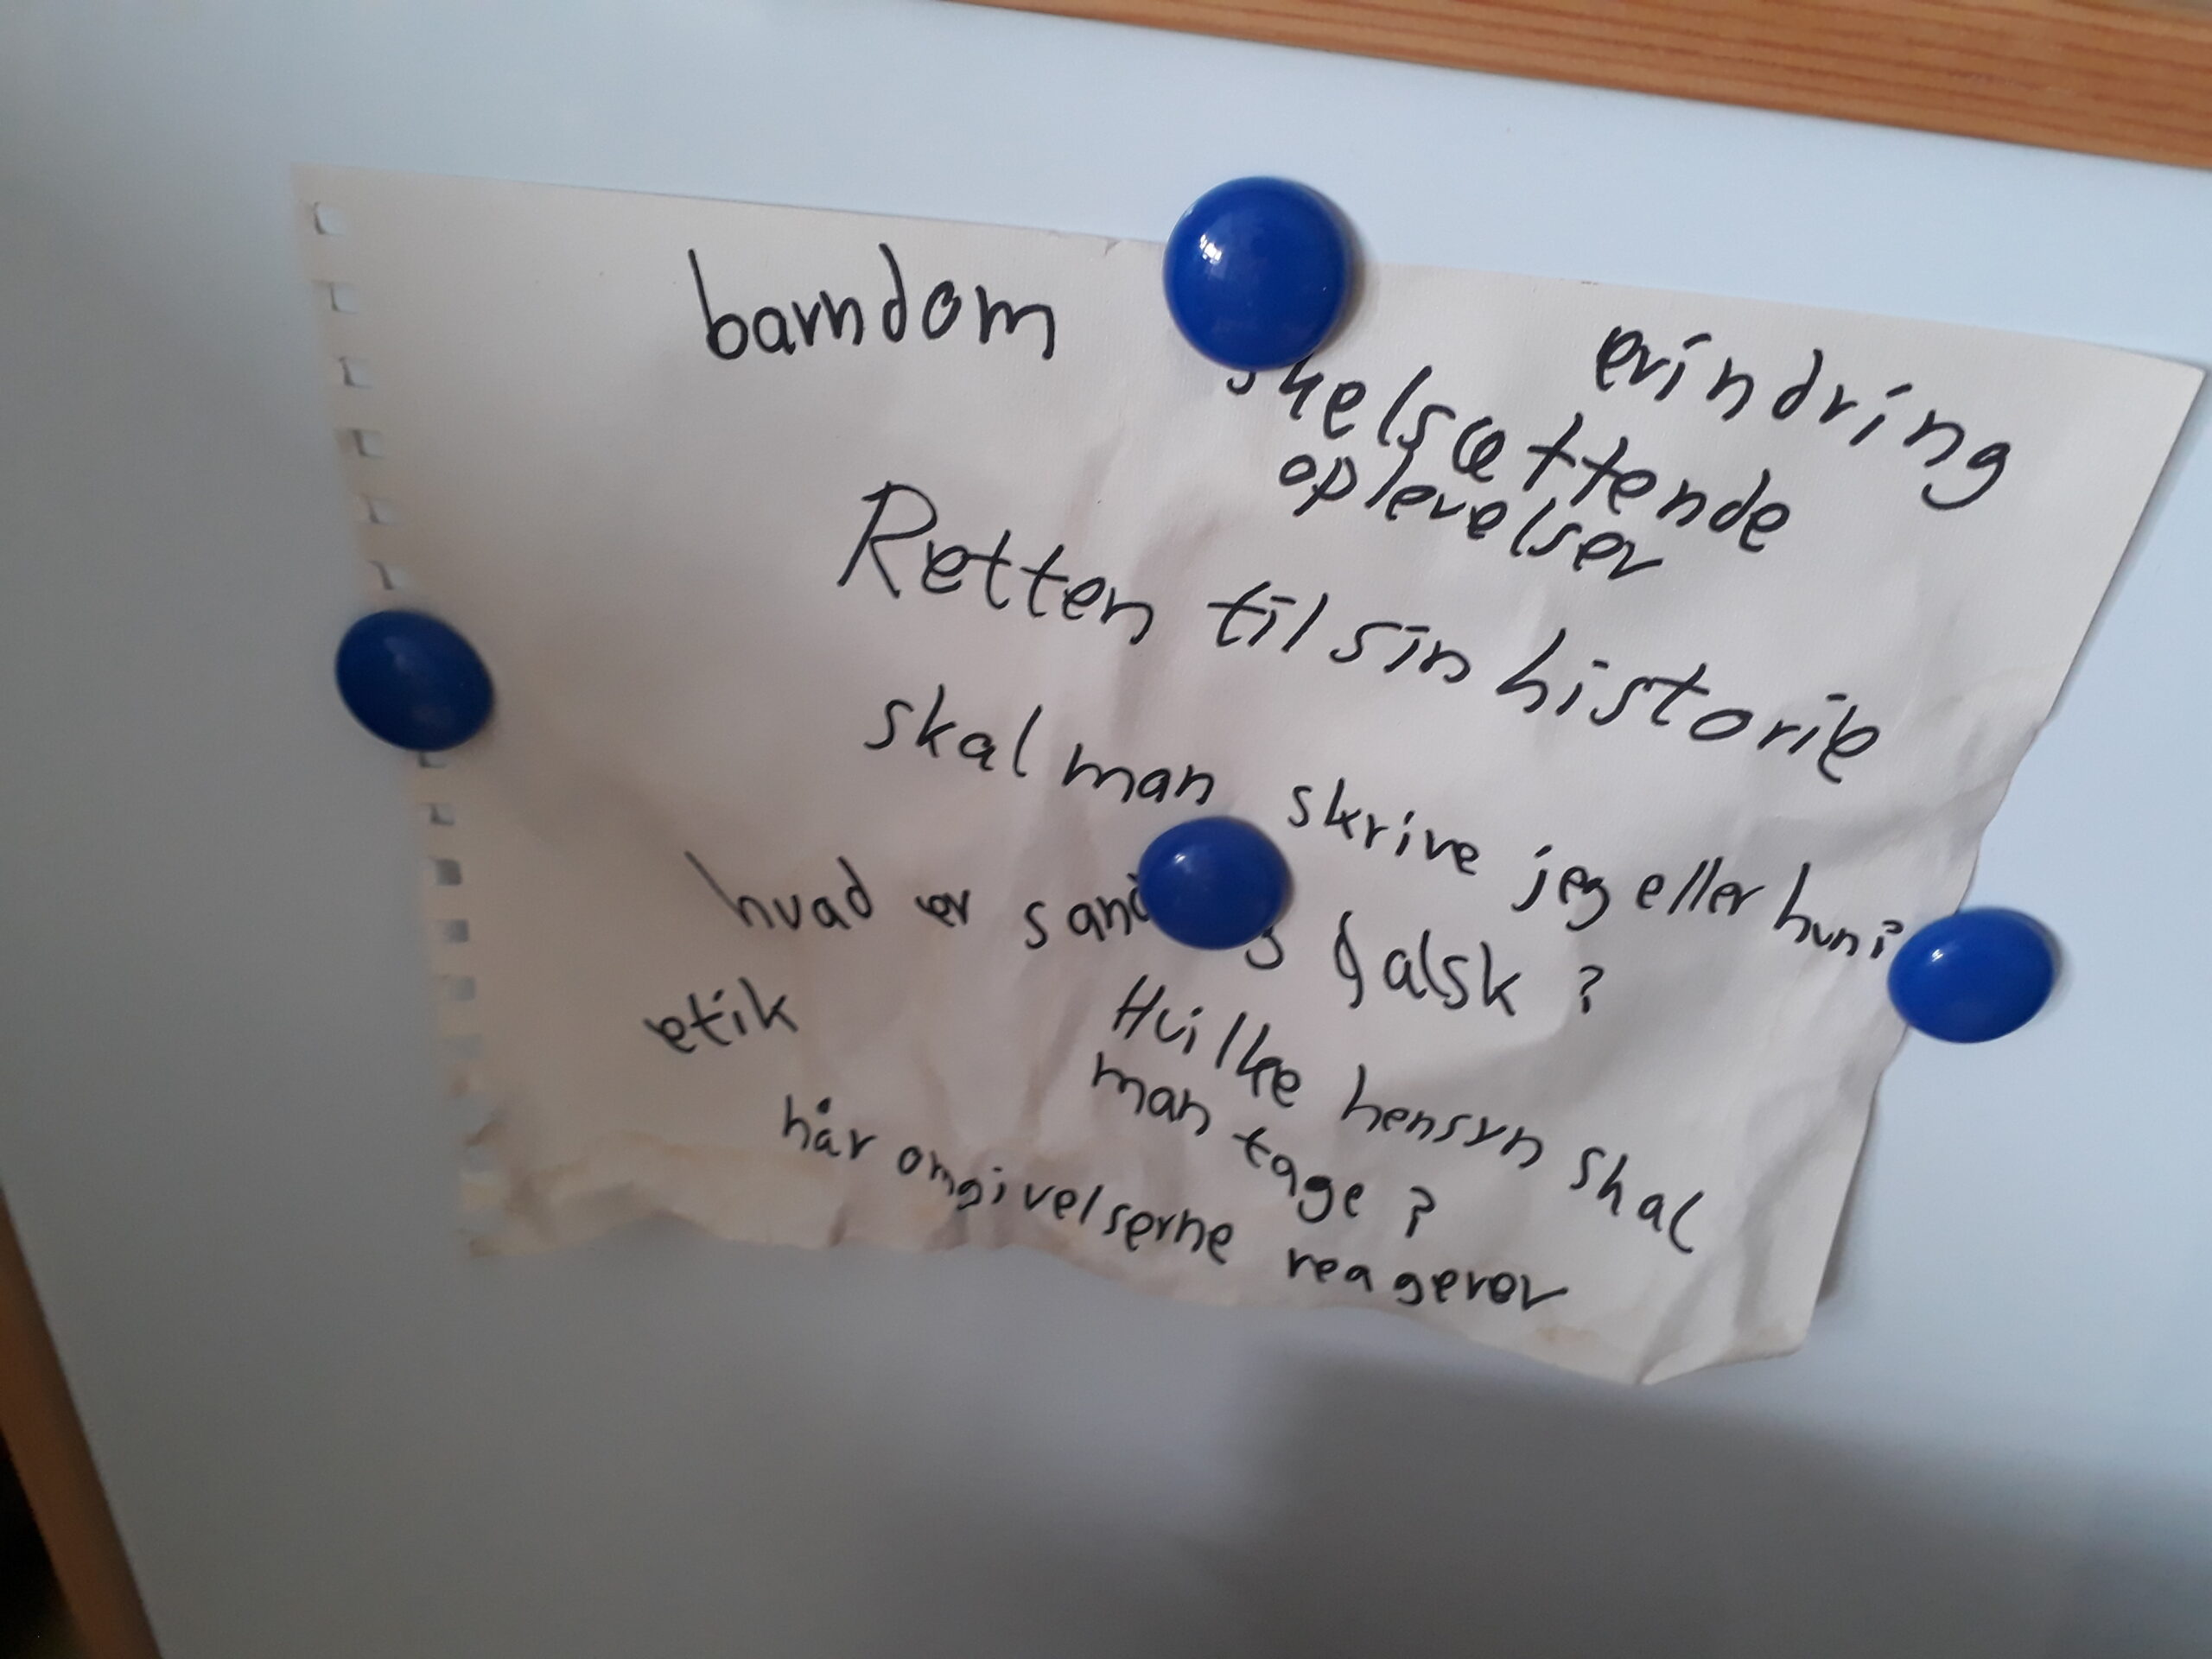 barndom
erindring
skelsættende
oplevelser
Retten til sin historie
skal man skrive jeg eller hun?
hvad er sand falsk?
etik
Hvilke hensyn skal
man tage?
når omgivelserne reagerer